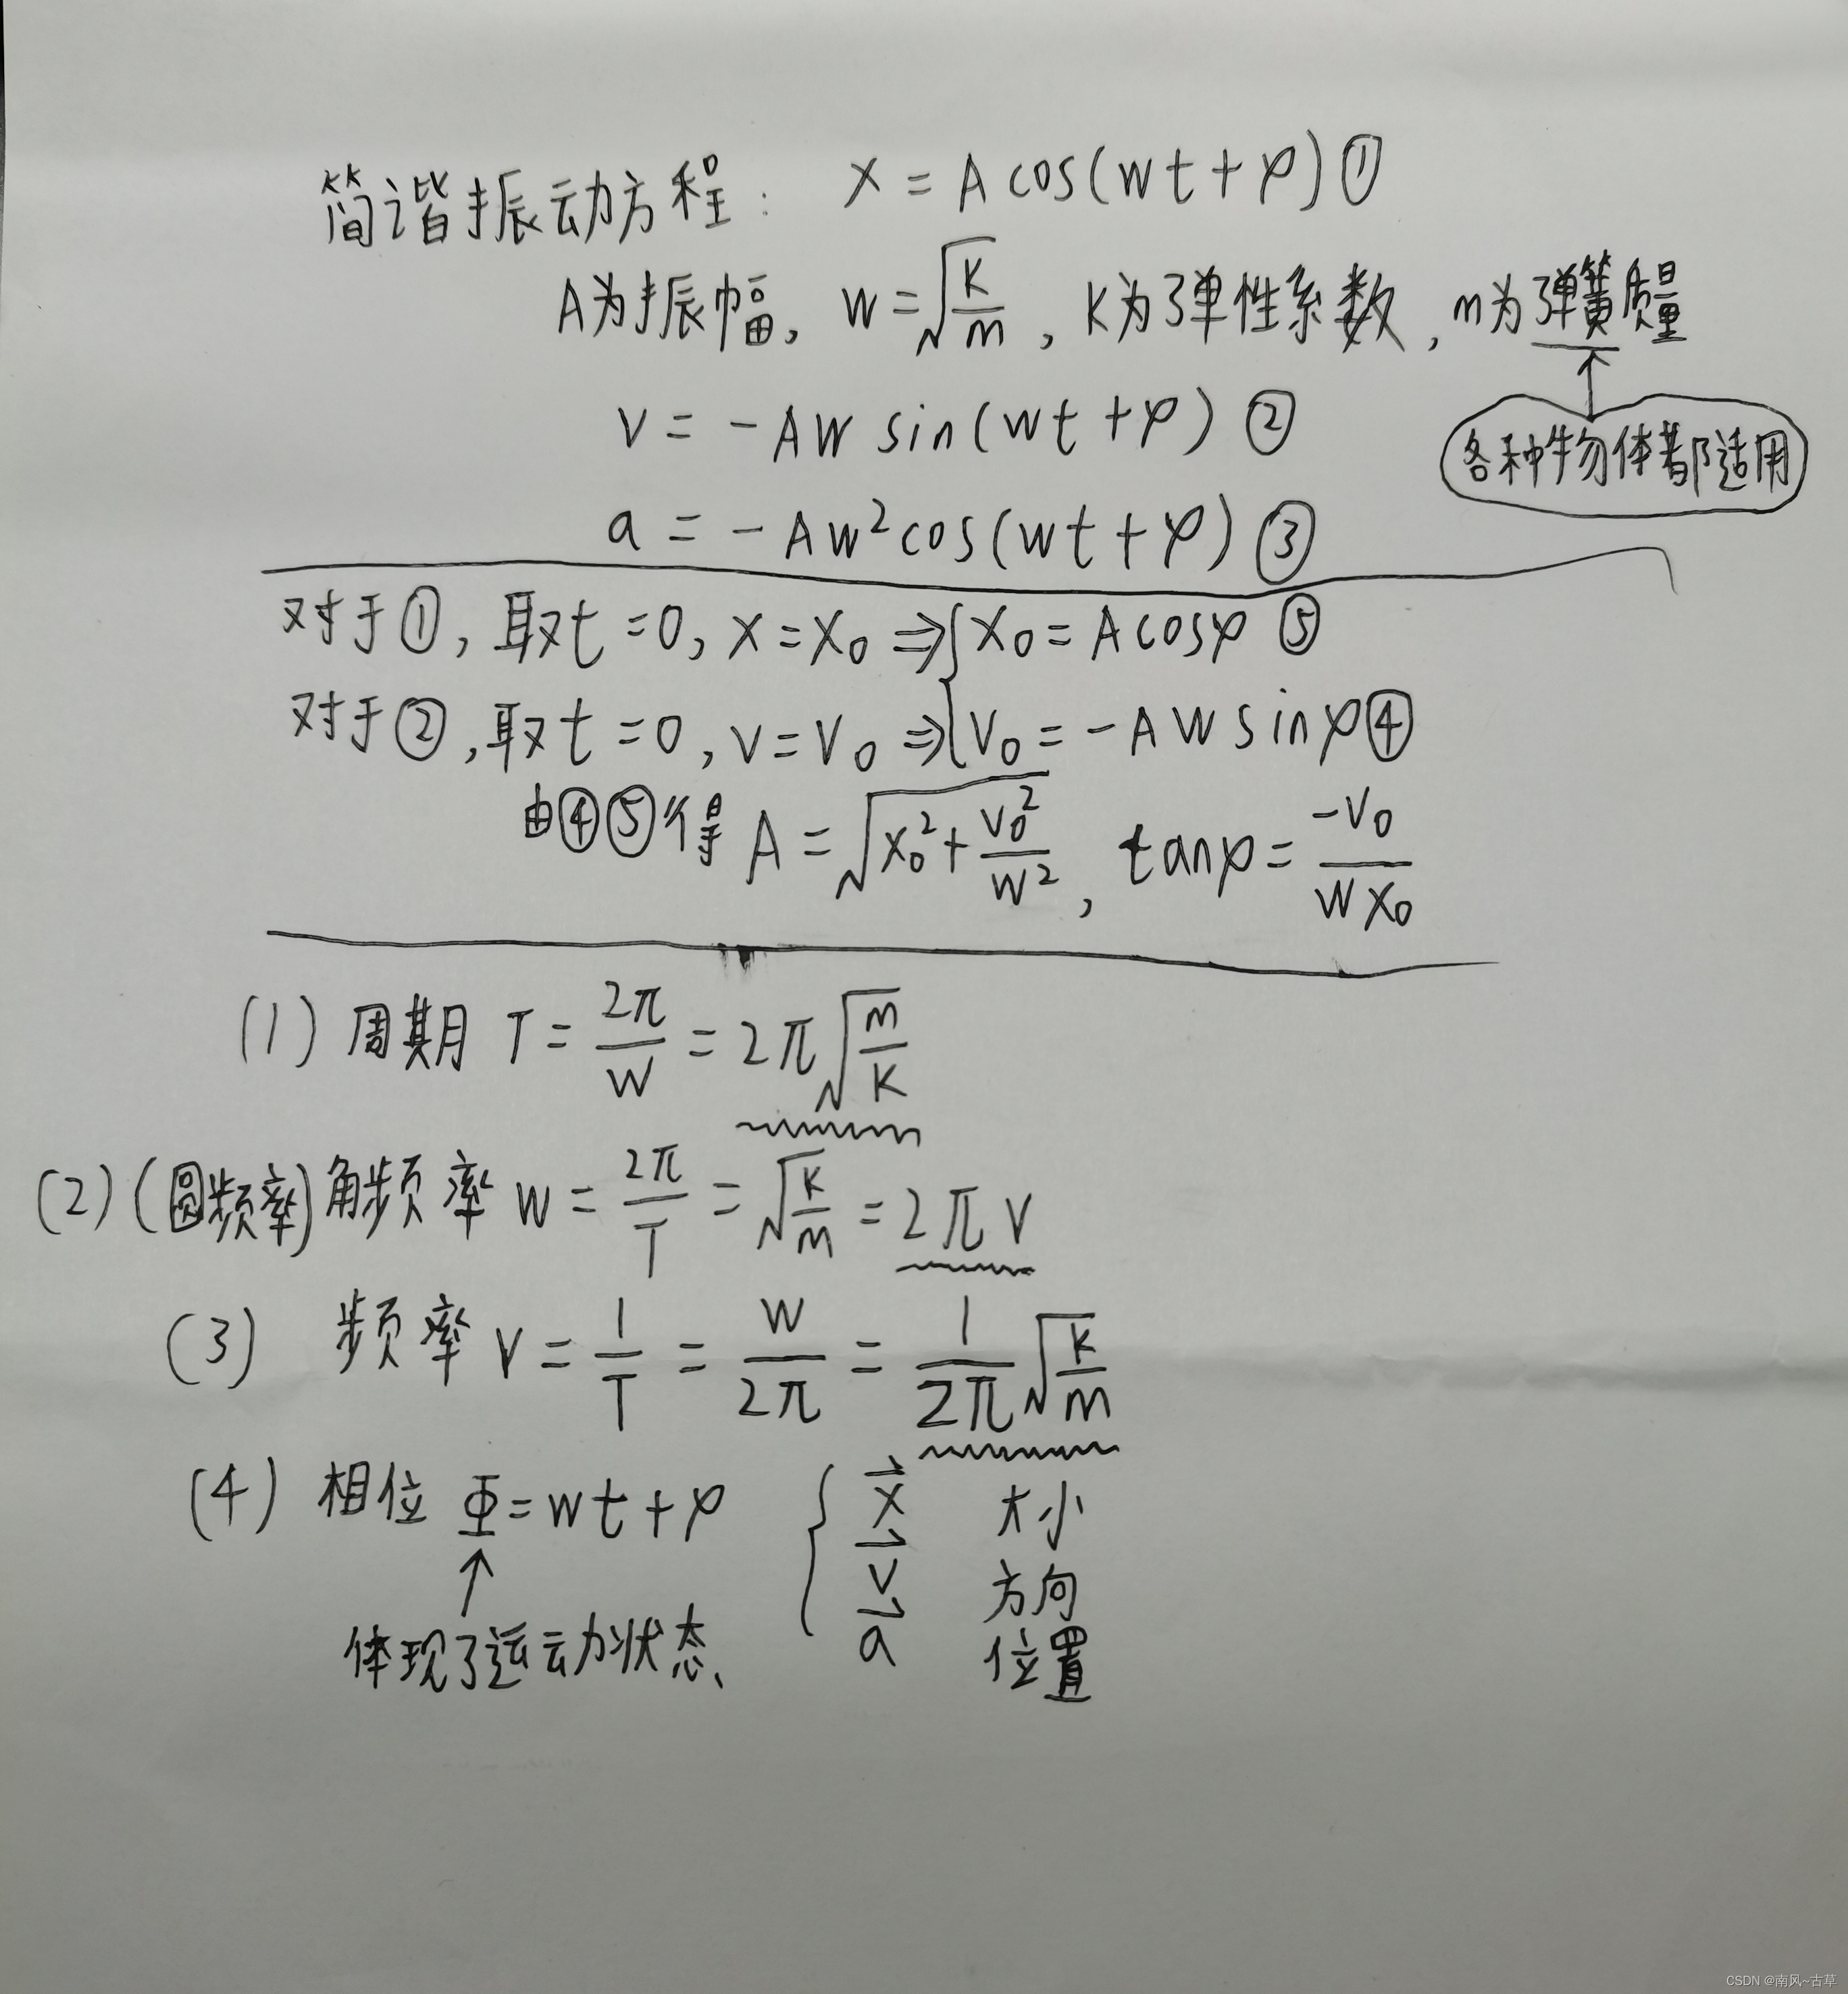 简谐振动方程: x = A cos(wt+φ)①
A为振幅, w=√(k/m), k为弹性系数, m为弹簧质量
各种物体都适用
v = -Aw sin(wt+φ) ②
a = -Aw²cos(wt+φ) ③
对于①, 取t=0, x=x₀ ⇒ { x₀=Acosφ ⑤
对于②, 取t=0, v=v₀ ⇒ { v₀=-Awsinφ④
由④⑤得 A=√(x₀²+v₀²/w²), tanφ=-v₀/(wx₀)
(1) 周期 T = 2π/w = 2π√(m/k)
(2) (圆频率)角频率 w = 2π/T = √(k/m) = 2πv
(3) 频率 v = 1/T = w/2π = 1/2π √(k/m)
(4) 相位 Φ=wt+φ { x⃗ 大小
v⃗ 方向
↑
体现了运动状态、 a⃗ 位置
CSDN @南风~古草